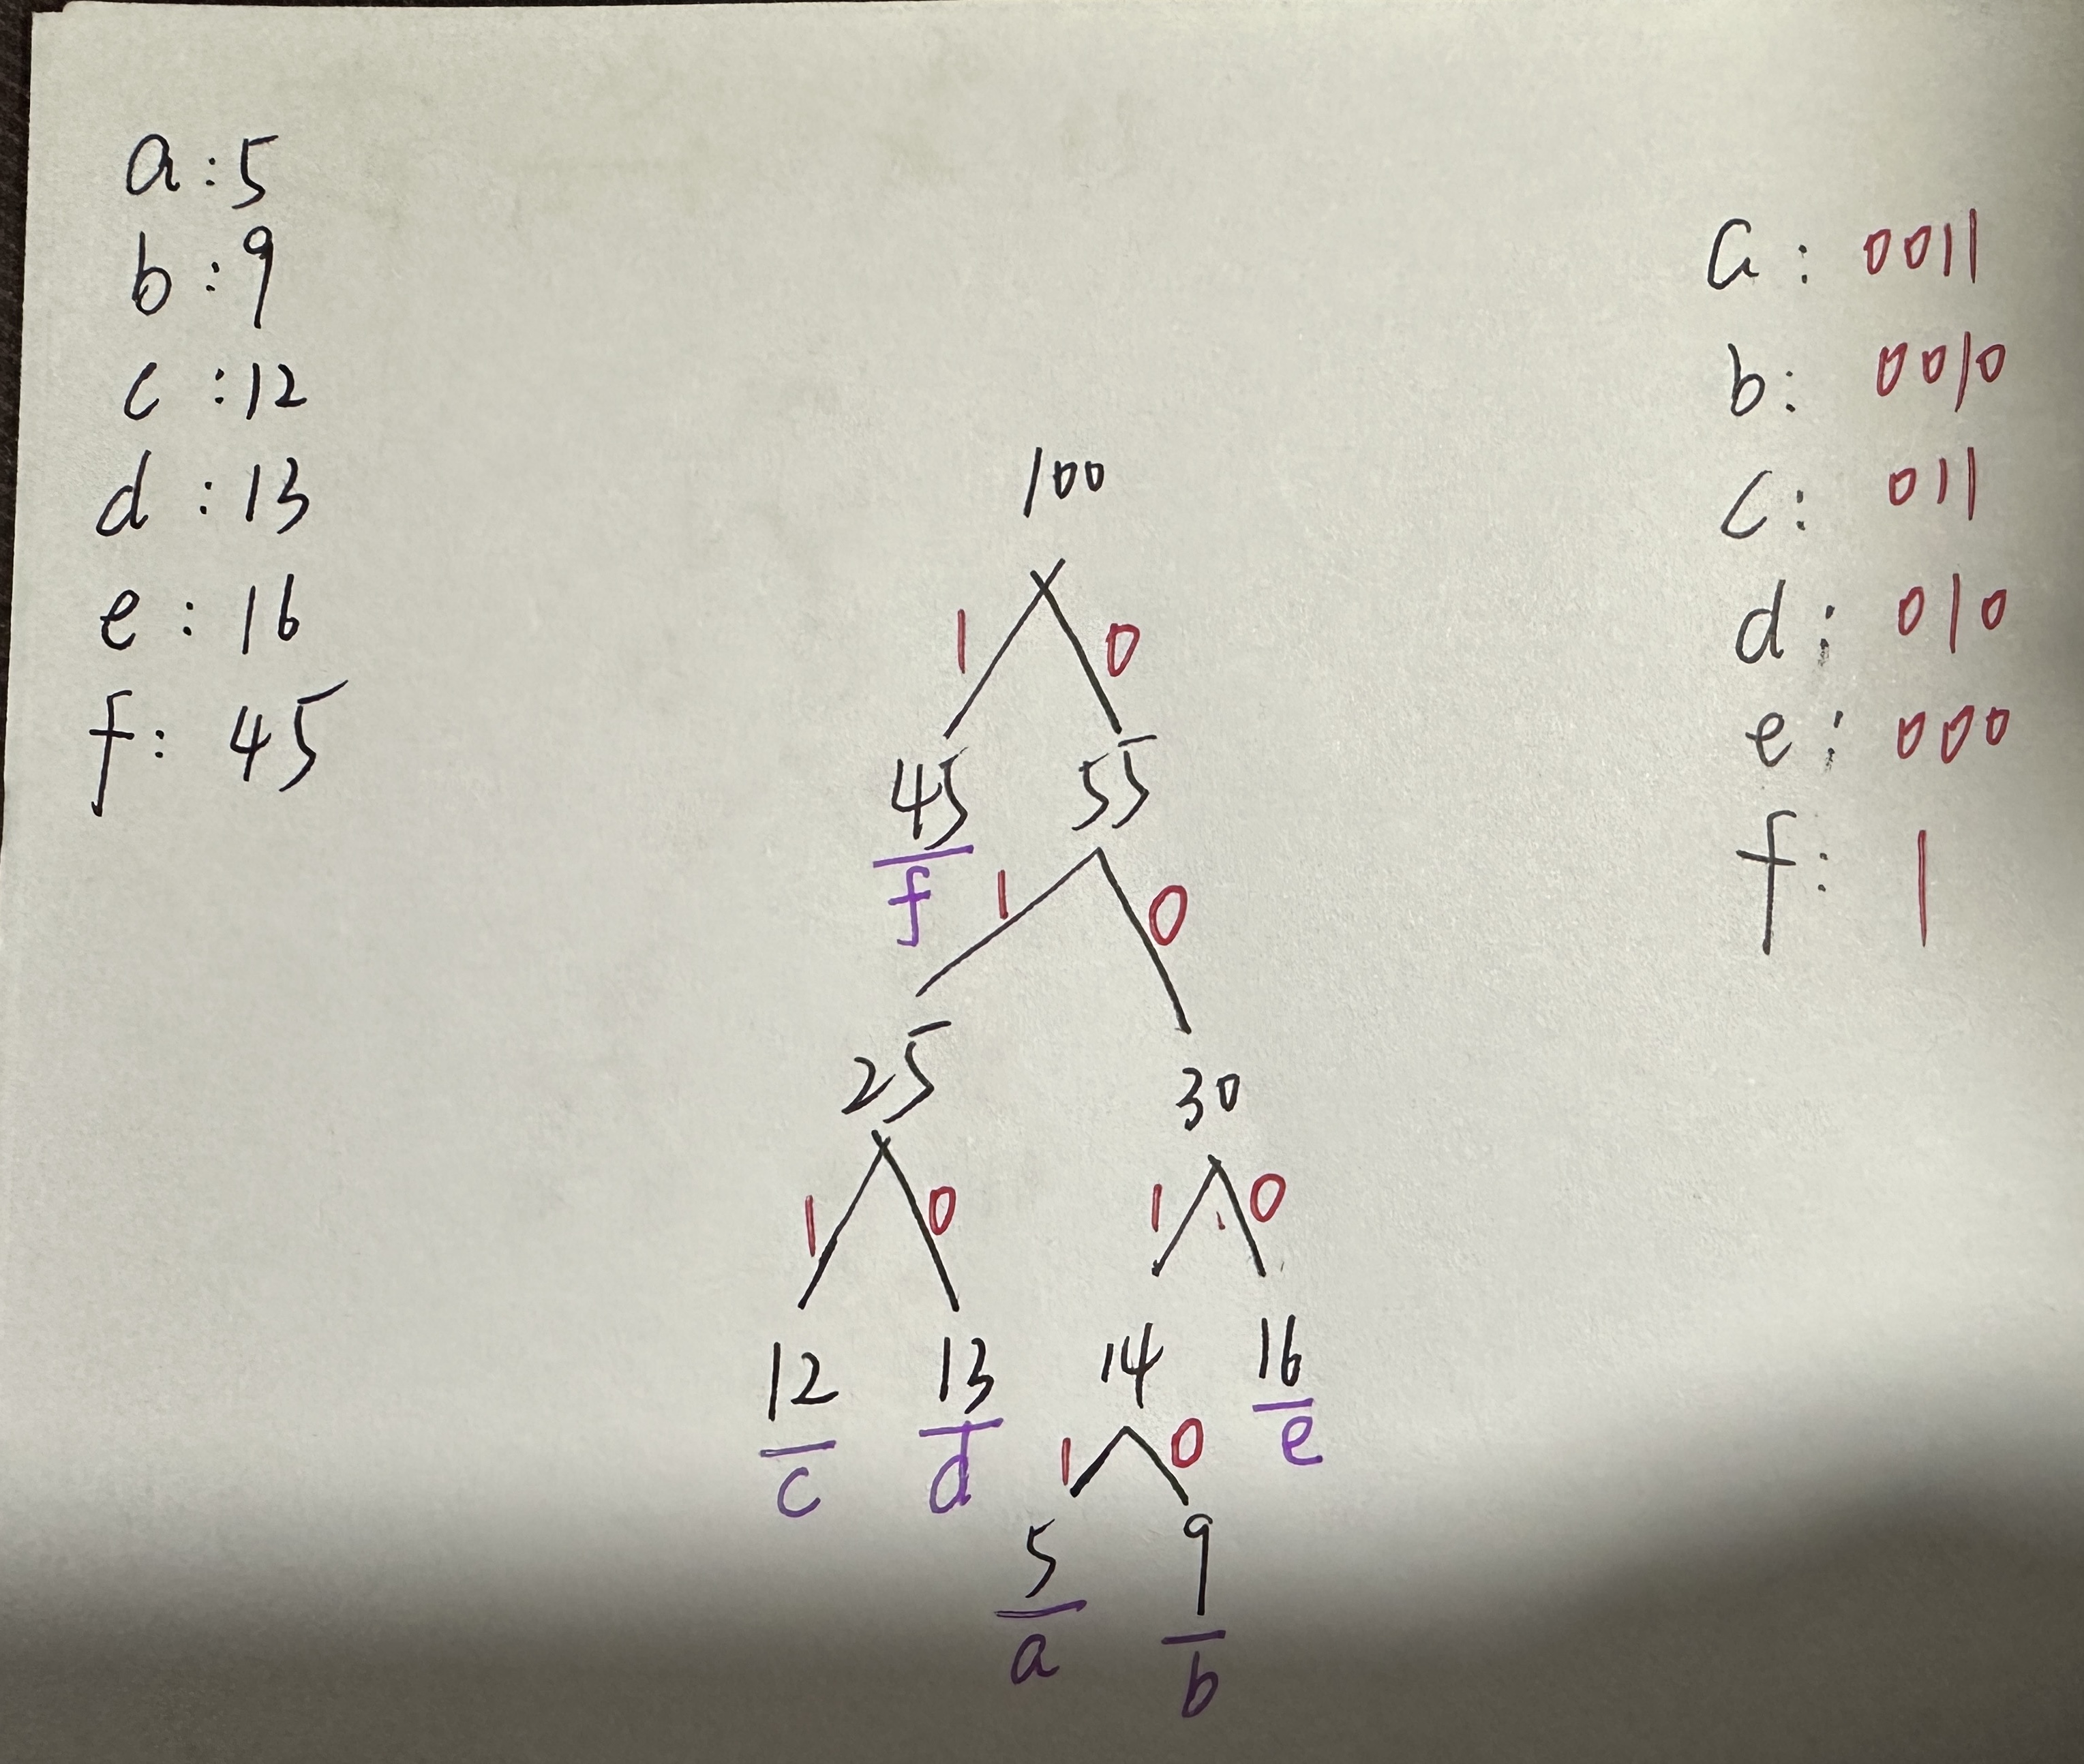 a:5
b:9
c:12
d:13
e:16
f:45
100
1 0
45 55
f
1 0
25 30
1 0 1 0
12 13 14 16
c d e
1 0
5 9
a b
a: 0011
b: 0010
c: 011
d: 010
e: 000
f: 1